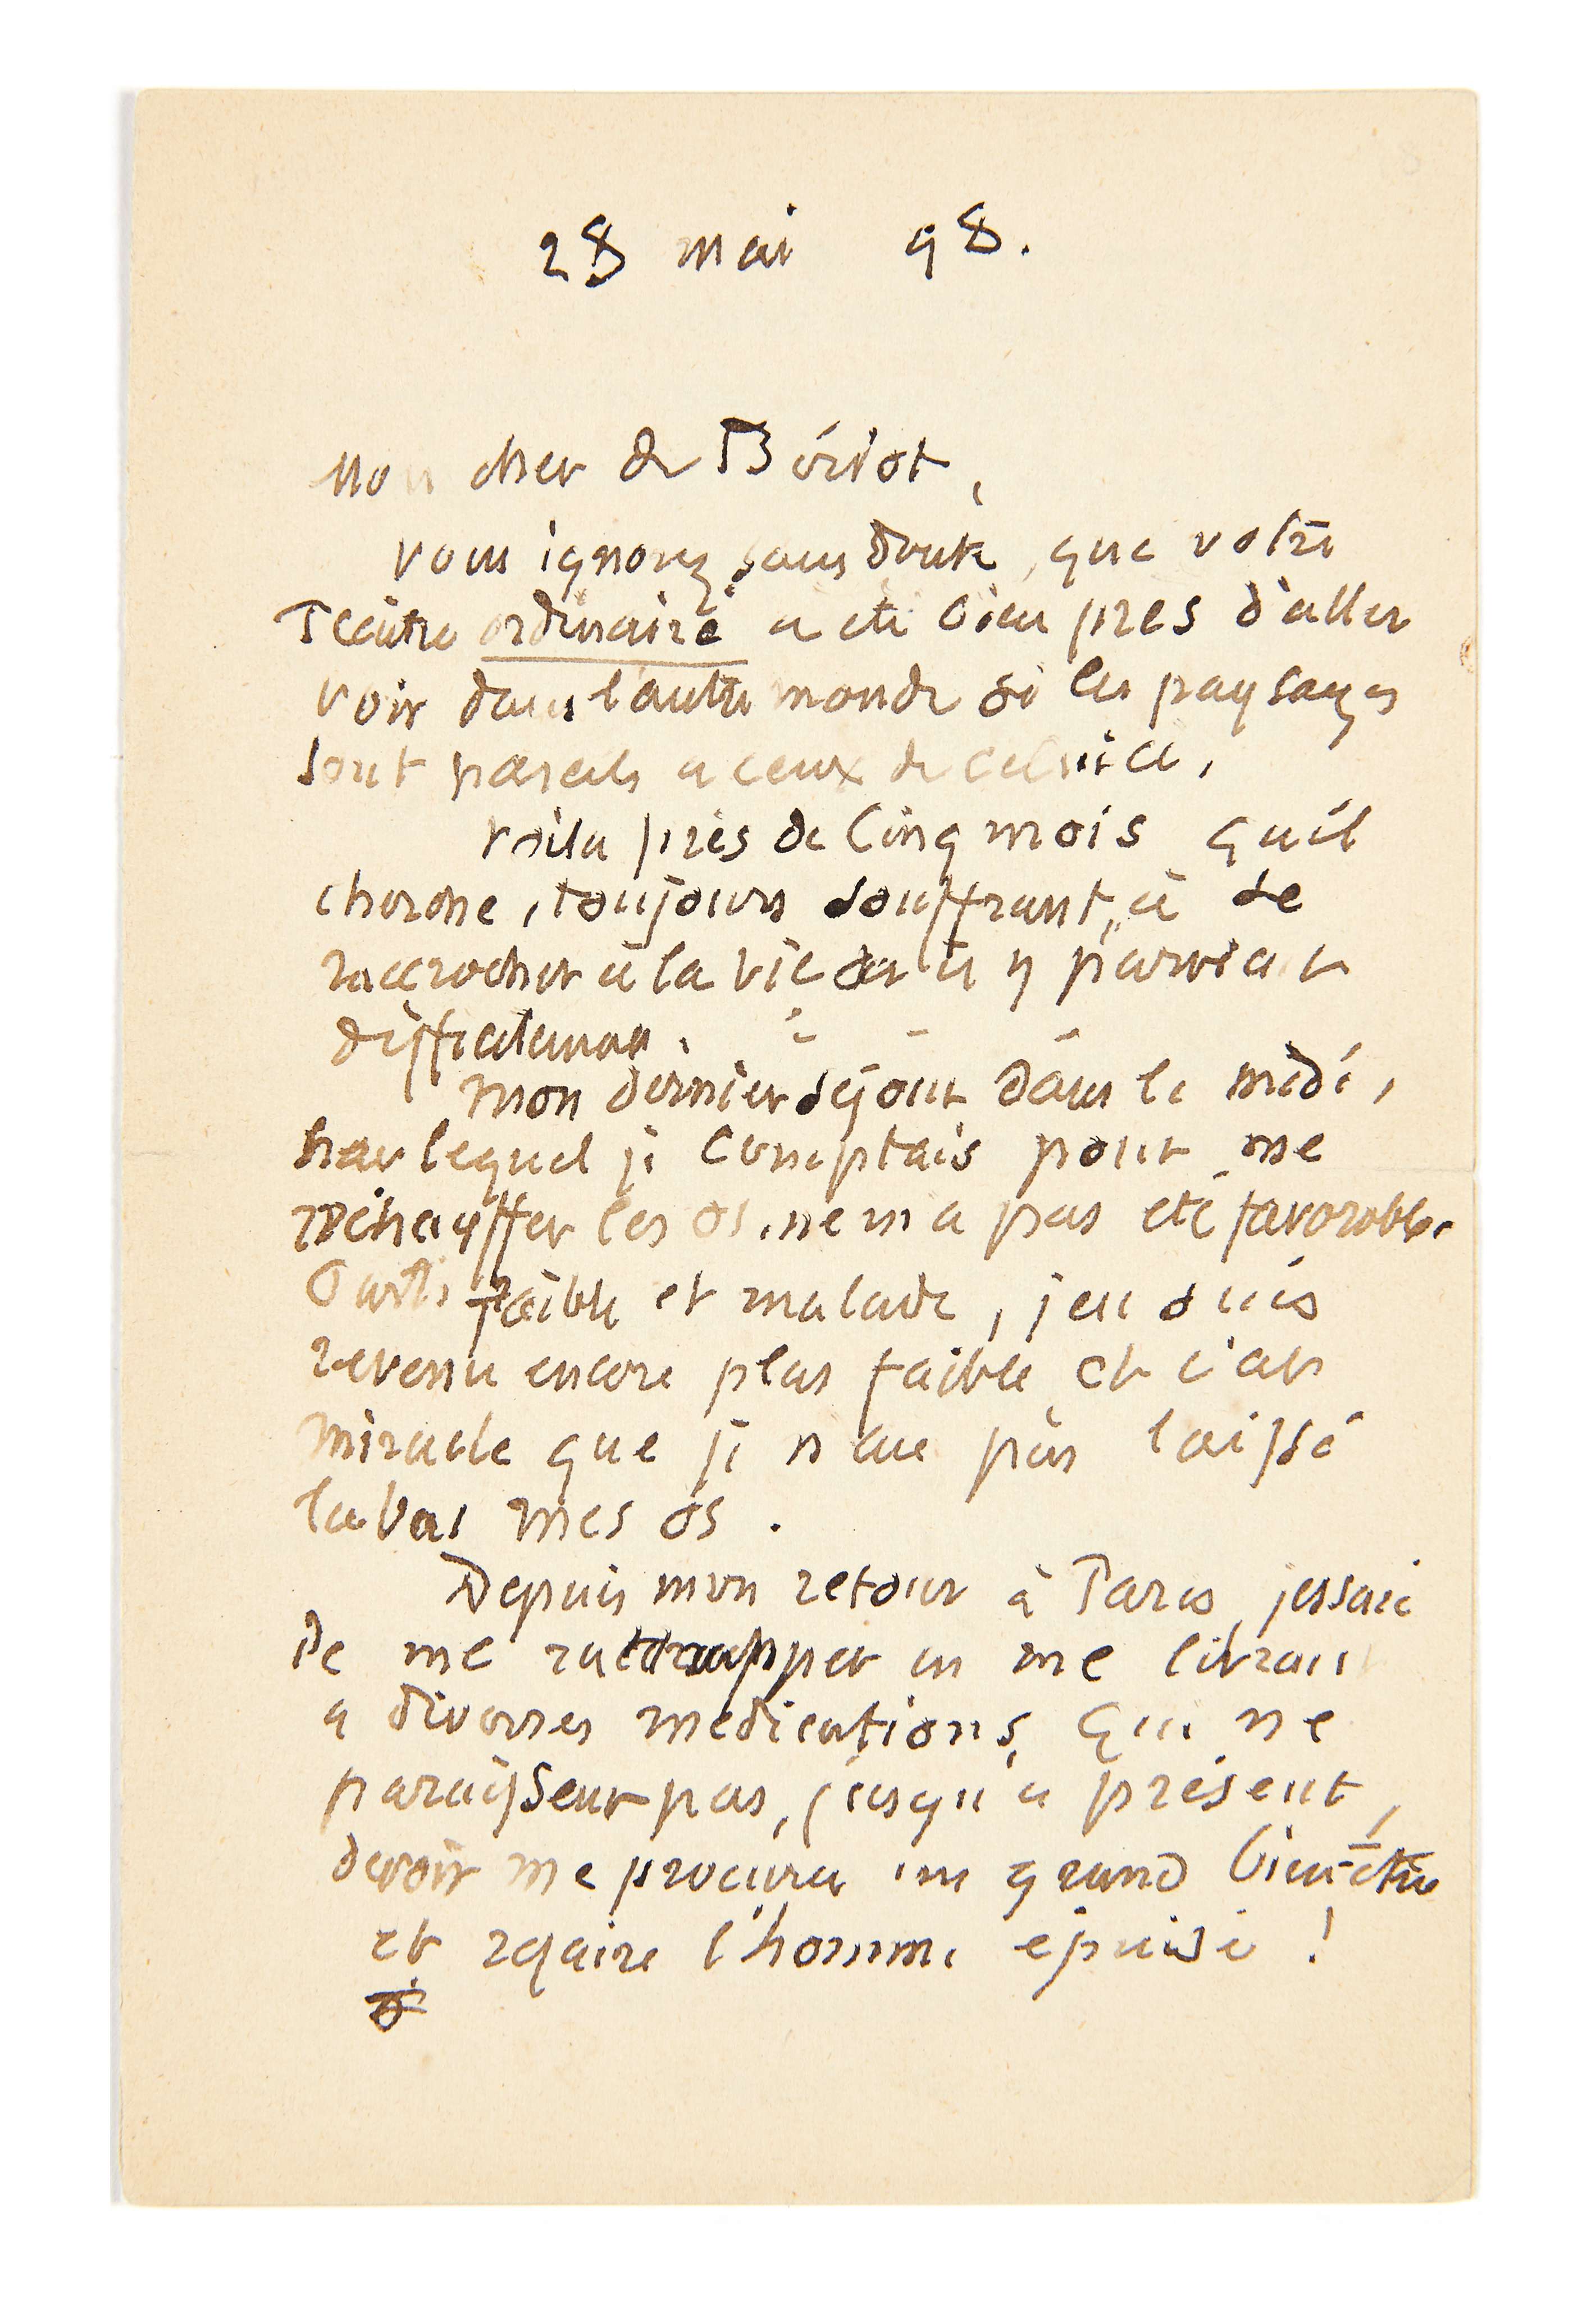 28 mai 98.
Mon cher de Bériot,
vous ignorez sans doute, que votre
Peintre ordinaire a eté bien pres d'aller
voir dans l'autre monde si les paysages
sont pareils a ceux de celui ci,
voila près de Cinq mois qu'il
cherche, toujours souffrant, à se
raccrocher à la vie et à y parvient
difficilement.
Mon dernier séjour dans le midi,
sur lequel je comptais pour me
réchauffer les os, ne m'a pas été favorable.
Parti faible et malade, j'en suis
revenu encore plus faible et c'est
miracle que je n'aie pas laissé
la bas mes os.
Depuis mon retour à Paris, j'essaie
De me rattrapper en me livrant
a diverses medications, qui ne
paraissent pas, jusqu'à présent,
devoir me procurer un grand bien-être
et refaire l'homme épuisé !